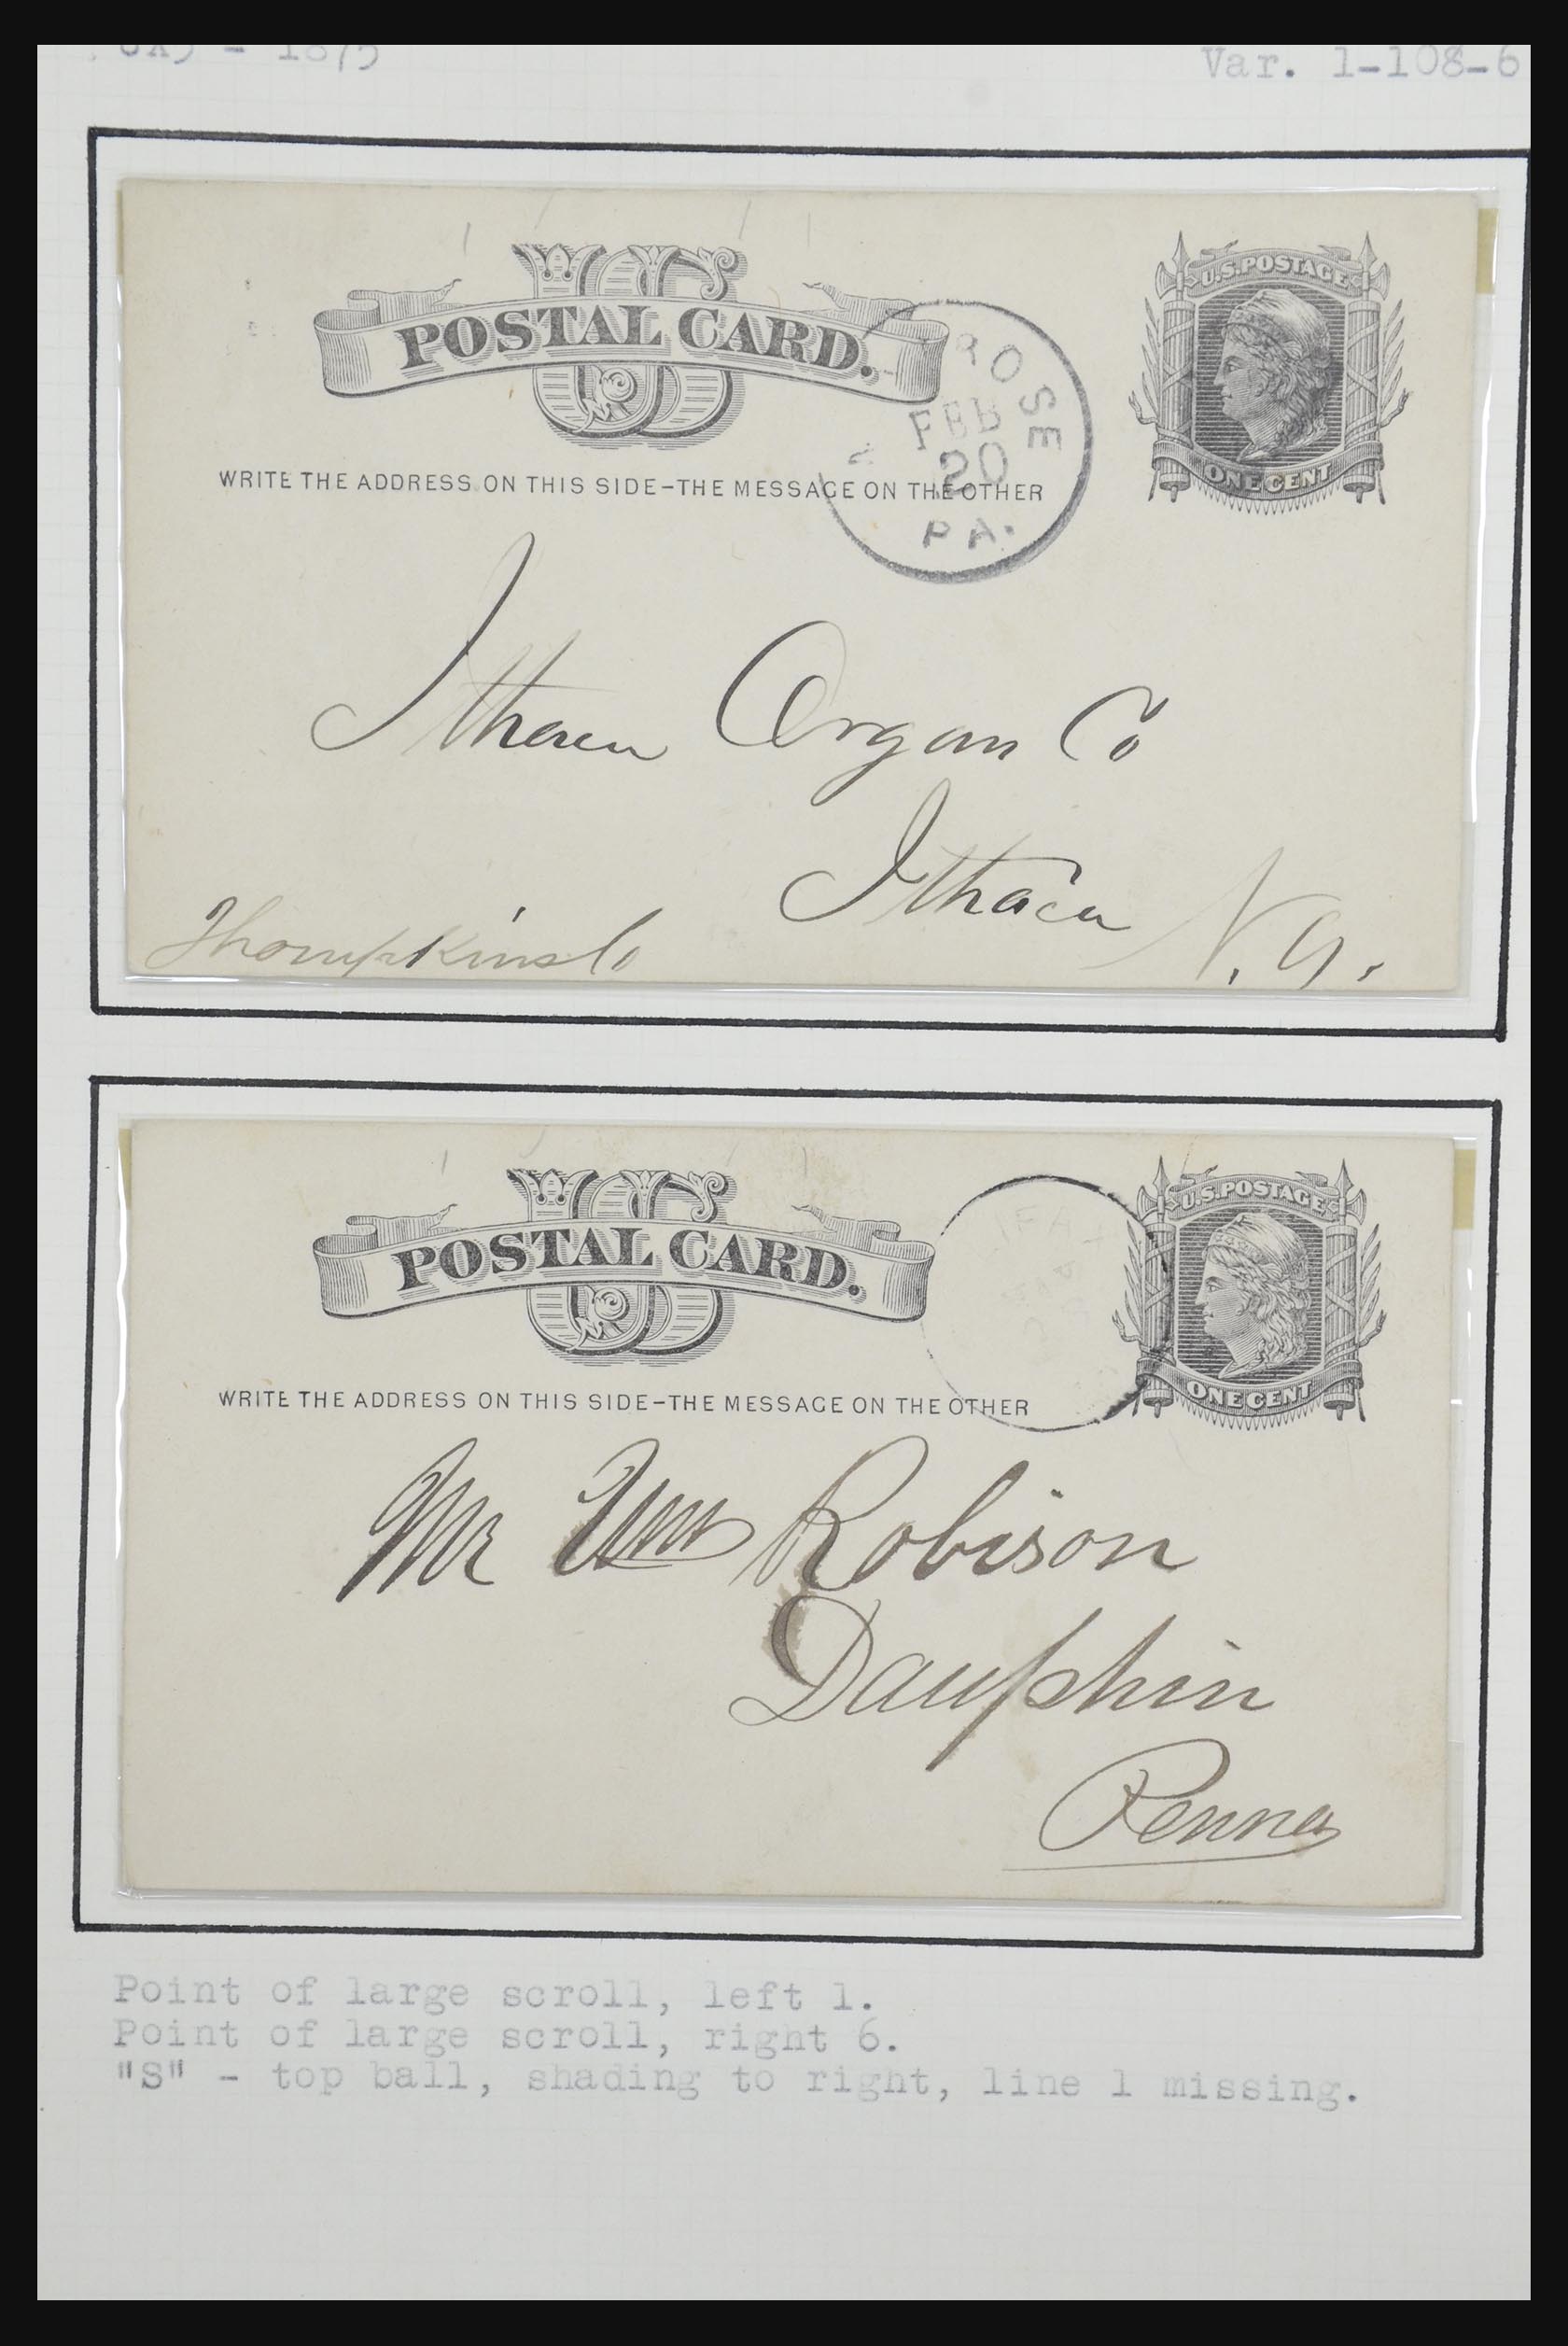 UX5 - 1875
Var. 1-108-6
US
POSTAL CARD.
U.S. POSTAGE
ONE CENT
WRITE THE ADDRESS ON THIS SIDE-THE MESSAGE ON THE OTHER
ROSE
FEB
20
PA.
Ithaca Organ Co
Ithaca N.Y.
Thompkins Co
US
POSTAL CARD.
U.S. POSTAGE
ONE CENT
WRITE THE ADDRESS ON THIS SIDE-THE MESSAGE ON THE OTHER
Mr Wm Robison
Dauphin
Penna
Point of large scroll, left 1.
Point of large scroll, right 6.
"S" - top ball, shading to right, line 1 missing.